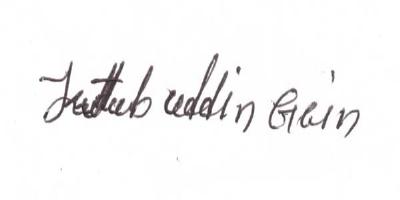 Kutub uddin Gain